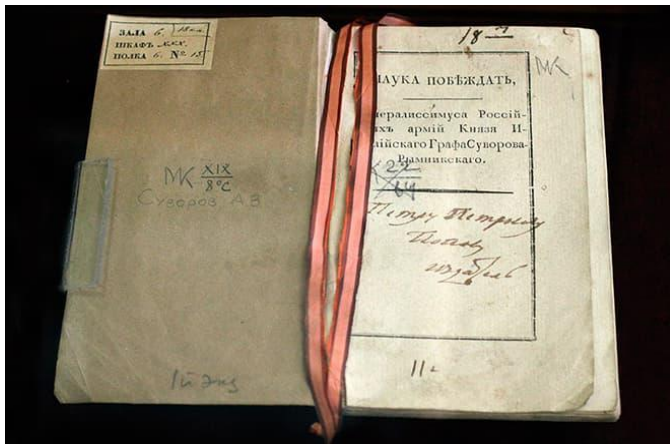 ЗАЛА 6.
ШКАФЪ XXX.
ПОЛКА 6. № 15
МК XIX
8°С
Суворов А.В
1й экз
18
МК
НАУКА ПОБѢЖДАТЬ,
нералиссимуса Россій-
ихъ армій Князя И-
лійскаго Графа Суворова-
Рымникскаго.
22
64
Петру Петровичу
Попову
издатель
11